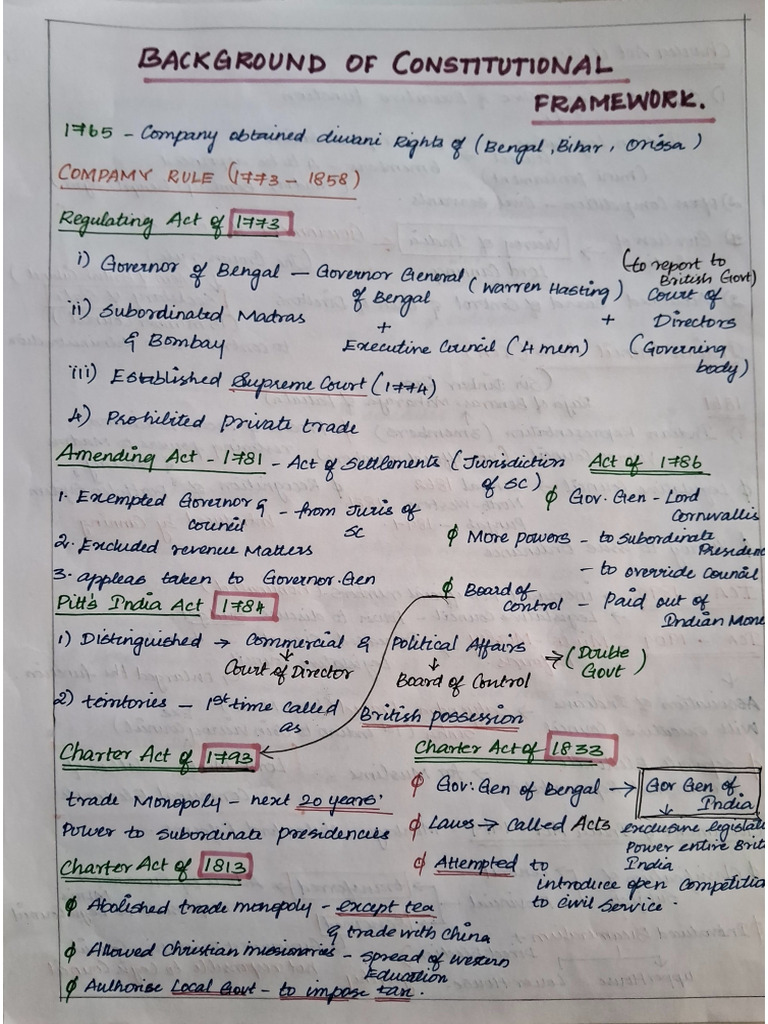 BACKGROUND OF CONSTITUTIONAL
FRAMEWORK.
1765 - Company obtained diwani Rights of (Bengal, Bihar, Orissa)
COMPAMY RULE (1773 - 1858)
Regulating Act of 1773
i) Governor of Bengal — Governor General (Warren Hasting)
of Bengal
(to report to
British Govt)
Court of
Directors
(Governing
body)
ii) Subordinated Madras
& Bombay
+
+
Executive Council (4 mem)
iii) Established Supreme Court (1774)
4) Prohibited private trade
Amending Act - 1781 - Act of Settlements (Jurisdiction
of SC)
1. Exempted Governor &
council
- from Juris of
SC
2. Excluded revenue Matters
3. appleas taken to Governor.Gen
Act of 1786
φ Gov. Gen - Lord
Cornwallis
φ More powers - to subordinate
Presiden
- to override Council
φ Board of
Control - Paid out of
Indian Mone
Pitt's India Act 1784
1) Distinguished → Commercial & Political Affairs ⇒ (Double
Govt)
↓ ↓
Court of Director Board of Control
2) territories - 1st time called
as British possession
Charter Act of 1793
trade Monopoly - next 20 years'
Power to subordinate presidencies
Charter Act of 1813
φ Abolished trade monopoly - except tea
& trade with China
φ Allowed Christian missionaries - spread of western
Education
φ Authorise Local Govt - to impose tax.
Charter Act of 1833
φ Gov: Gen of Bengal → Gov Gen of
India
↓
φ Laws → called Acts
exclusive legislat
Power entire Brit
India
φ Attempted to
introduce open Competitio
to civil Service.